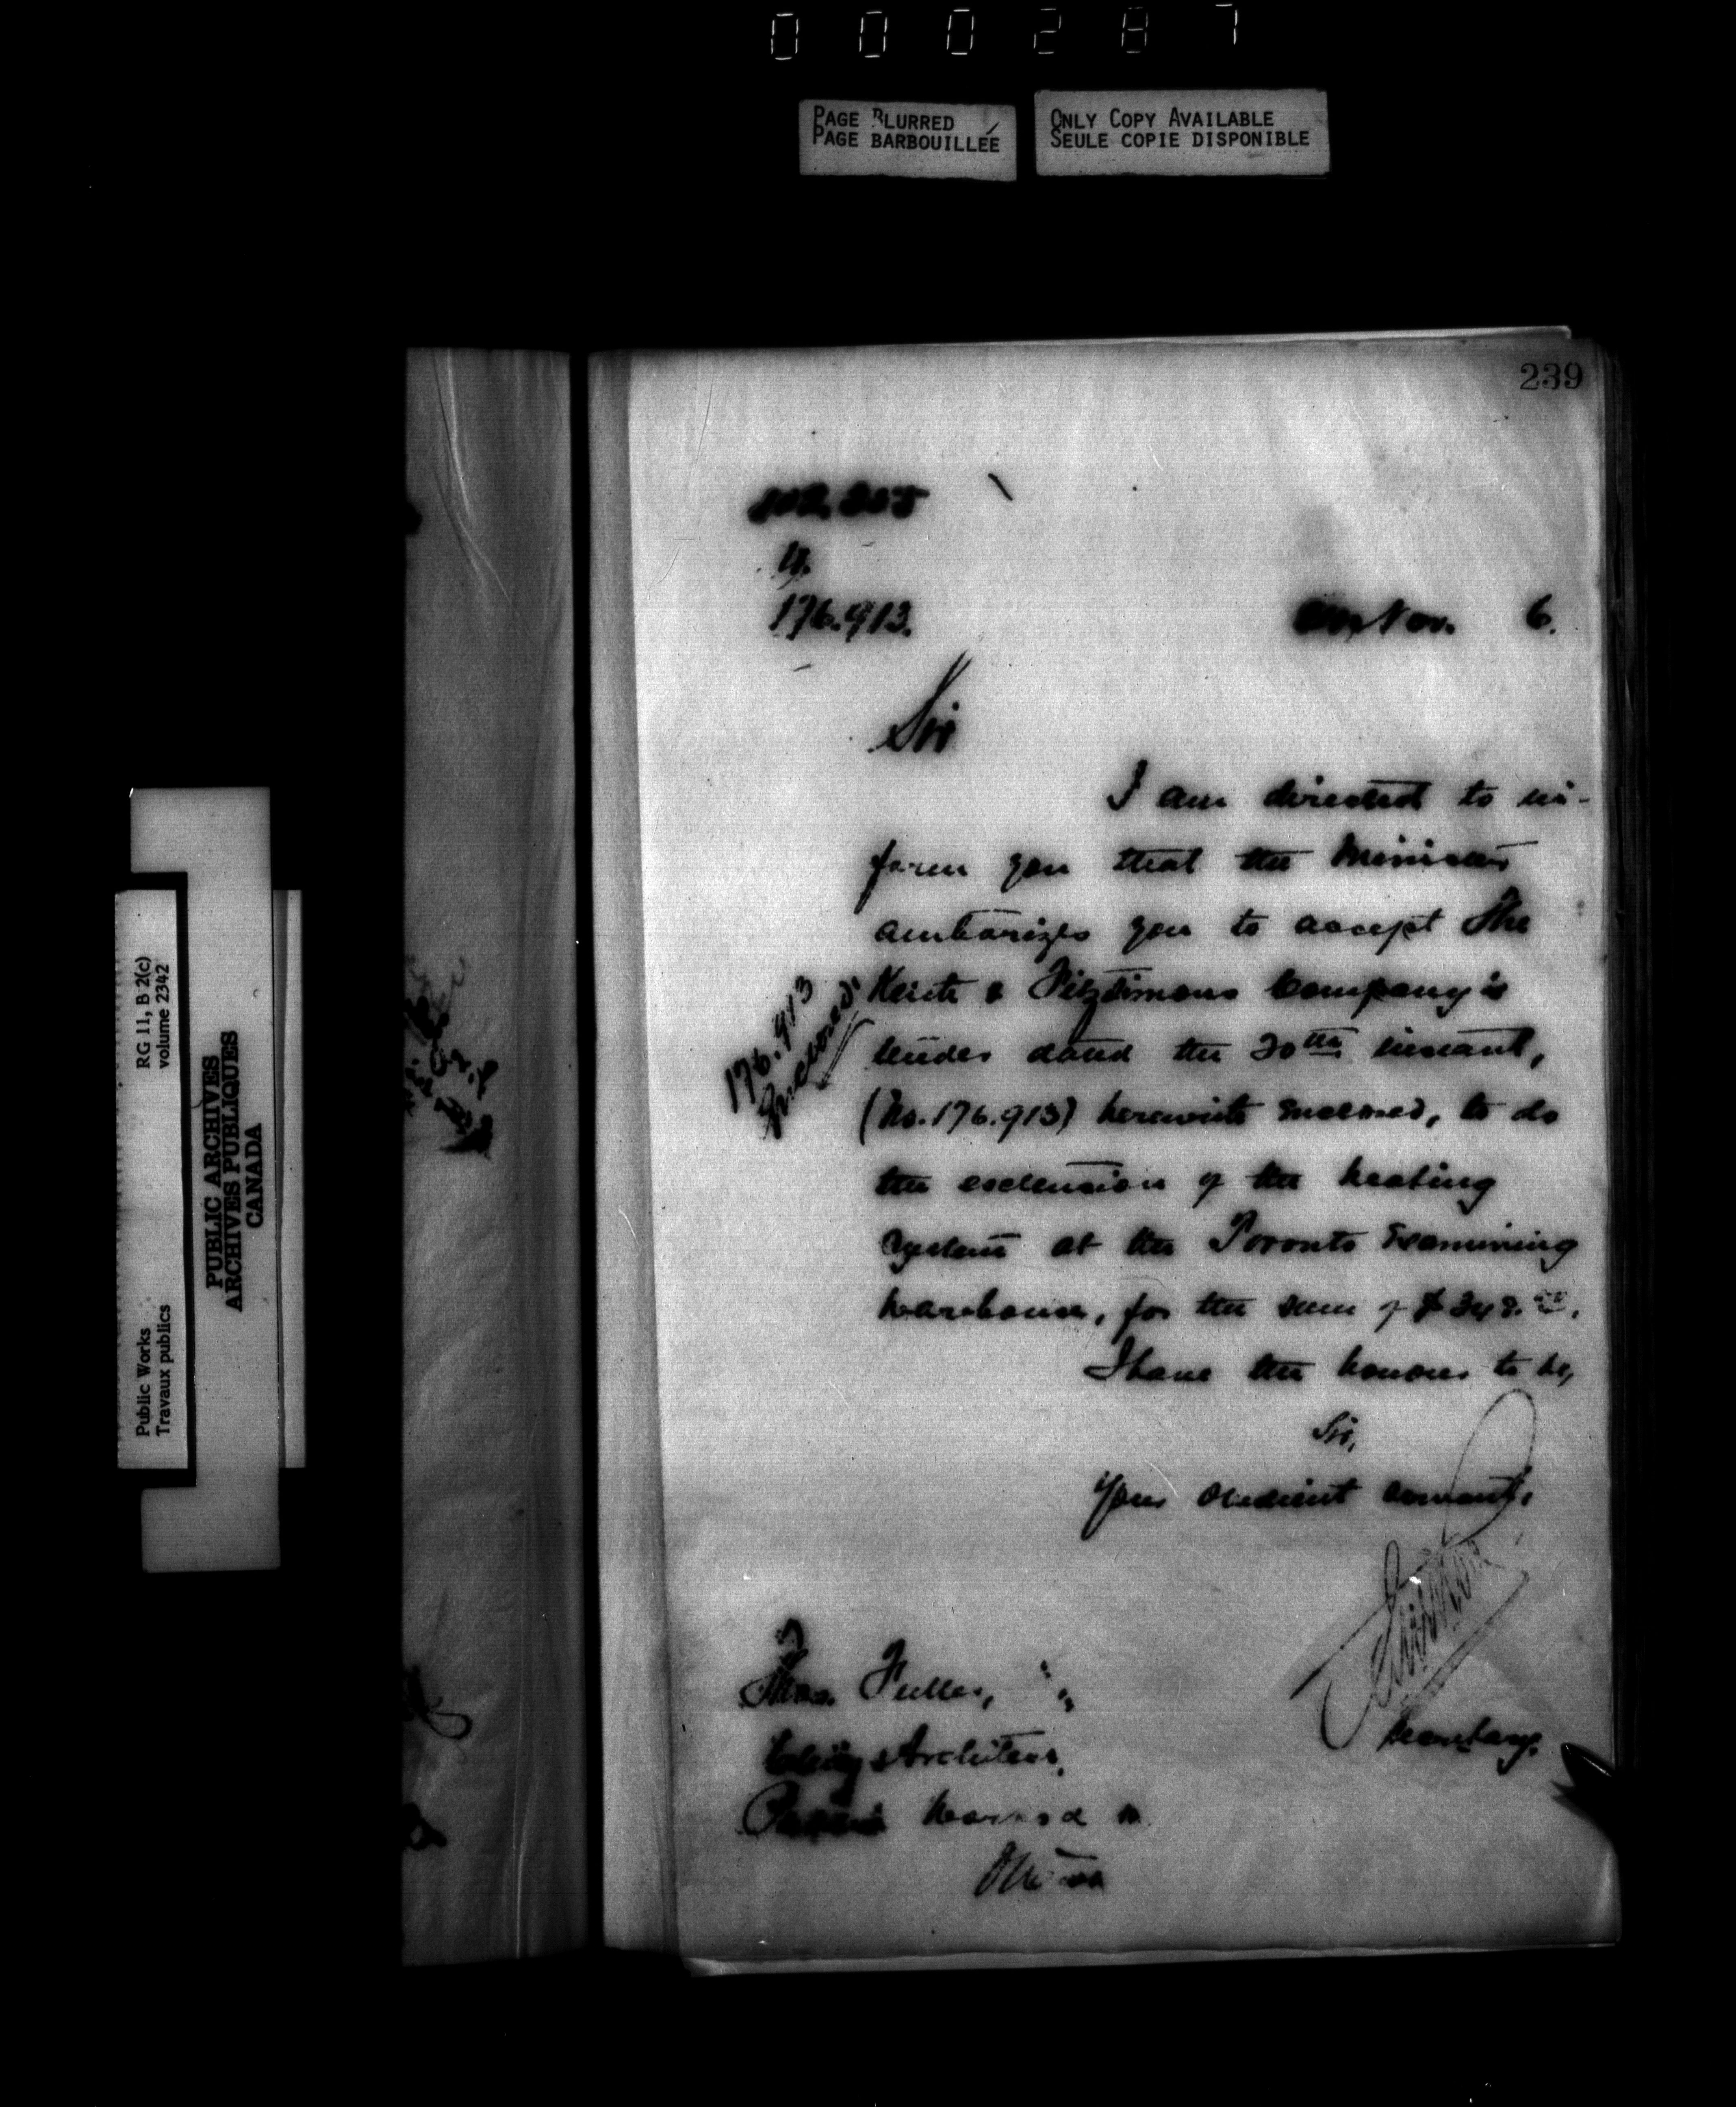 000287
PAGE BLURRED
PAGE BARBOUILLÉE
ONLY COPY AVAILABLE
SEULE COPIE DISPONIBLE
PUBLIC ARCHIVES
ARCHIVES PUBLIQUES
CANADA
RG 11, B 2(c)
volume 2342
Public Works
Travaux publics
239
4.
176.913.
Nov. 6.
Sir
I am directed to in-
form you that the Minister
authorizes you to accept The
Keith & Fitzsimons Company's
tender dated the 30th instant,
(No. 176.913) herewith enclosed, to do
the extension of the heating
system at the Toronto Examining
Warehouse, for the sum of $
I have the honour to be,
Sir,
Your obedient servant,
Secretary.
176.913
Enclosed.
Thos. Fuller,
Chief Architect,
Ottawa